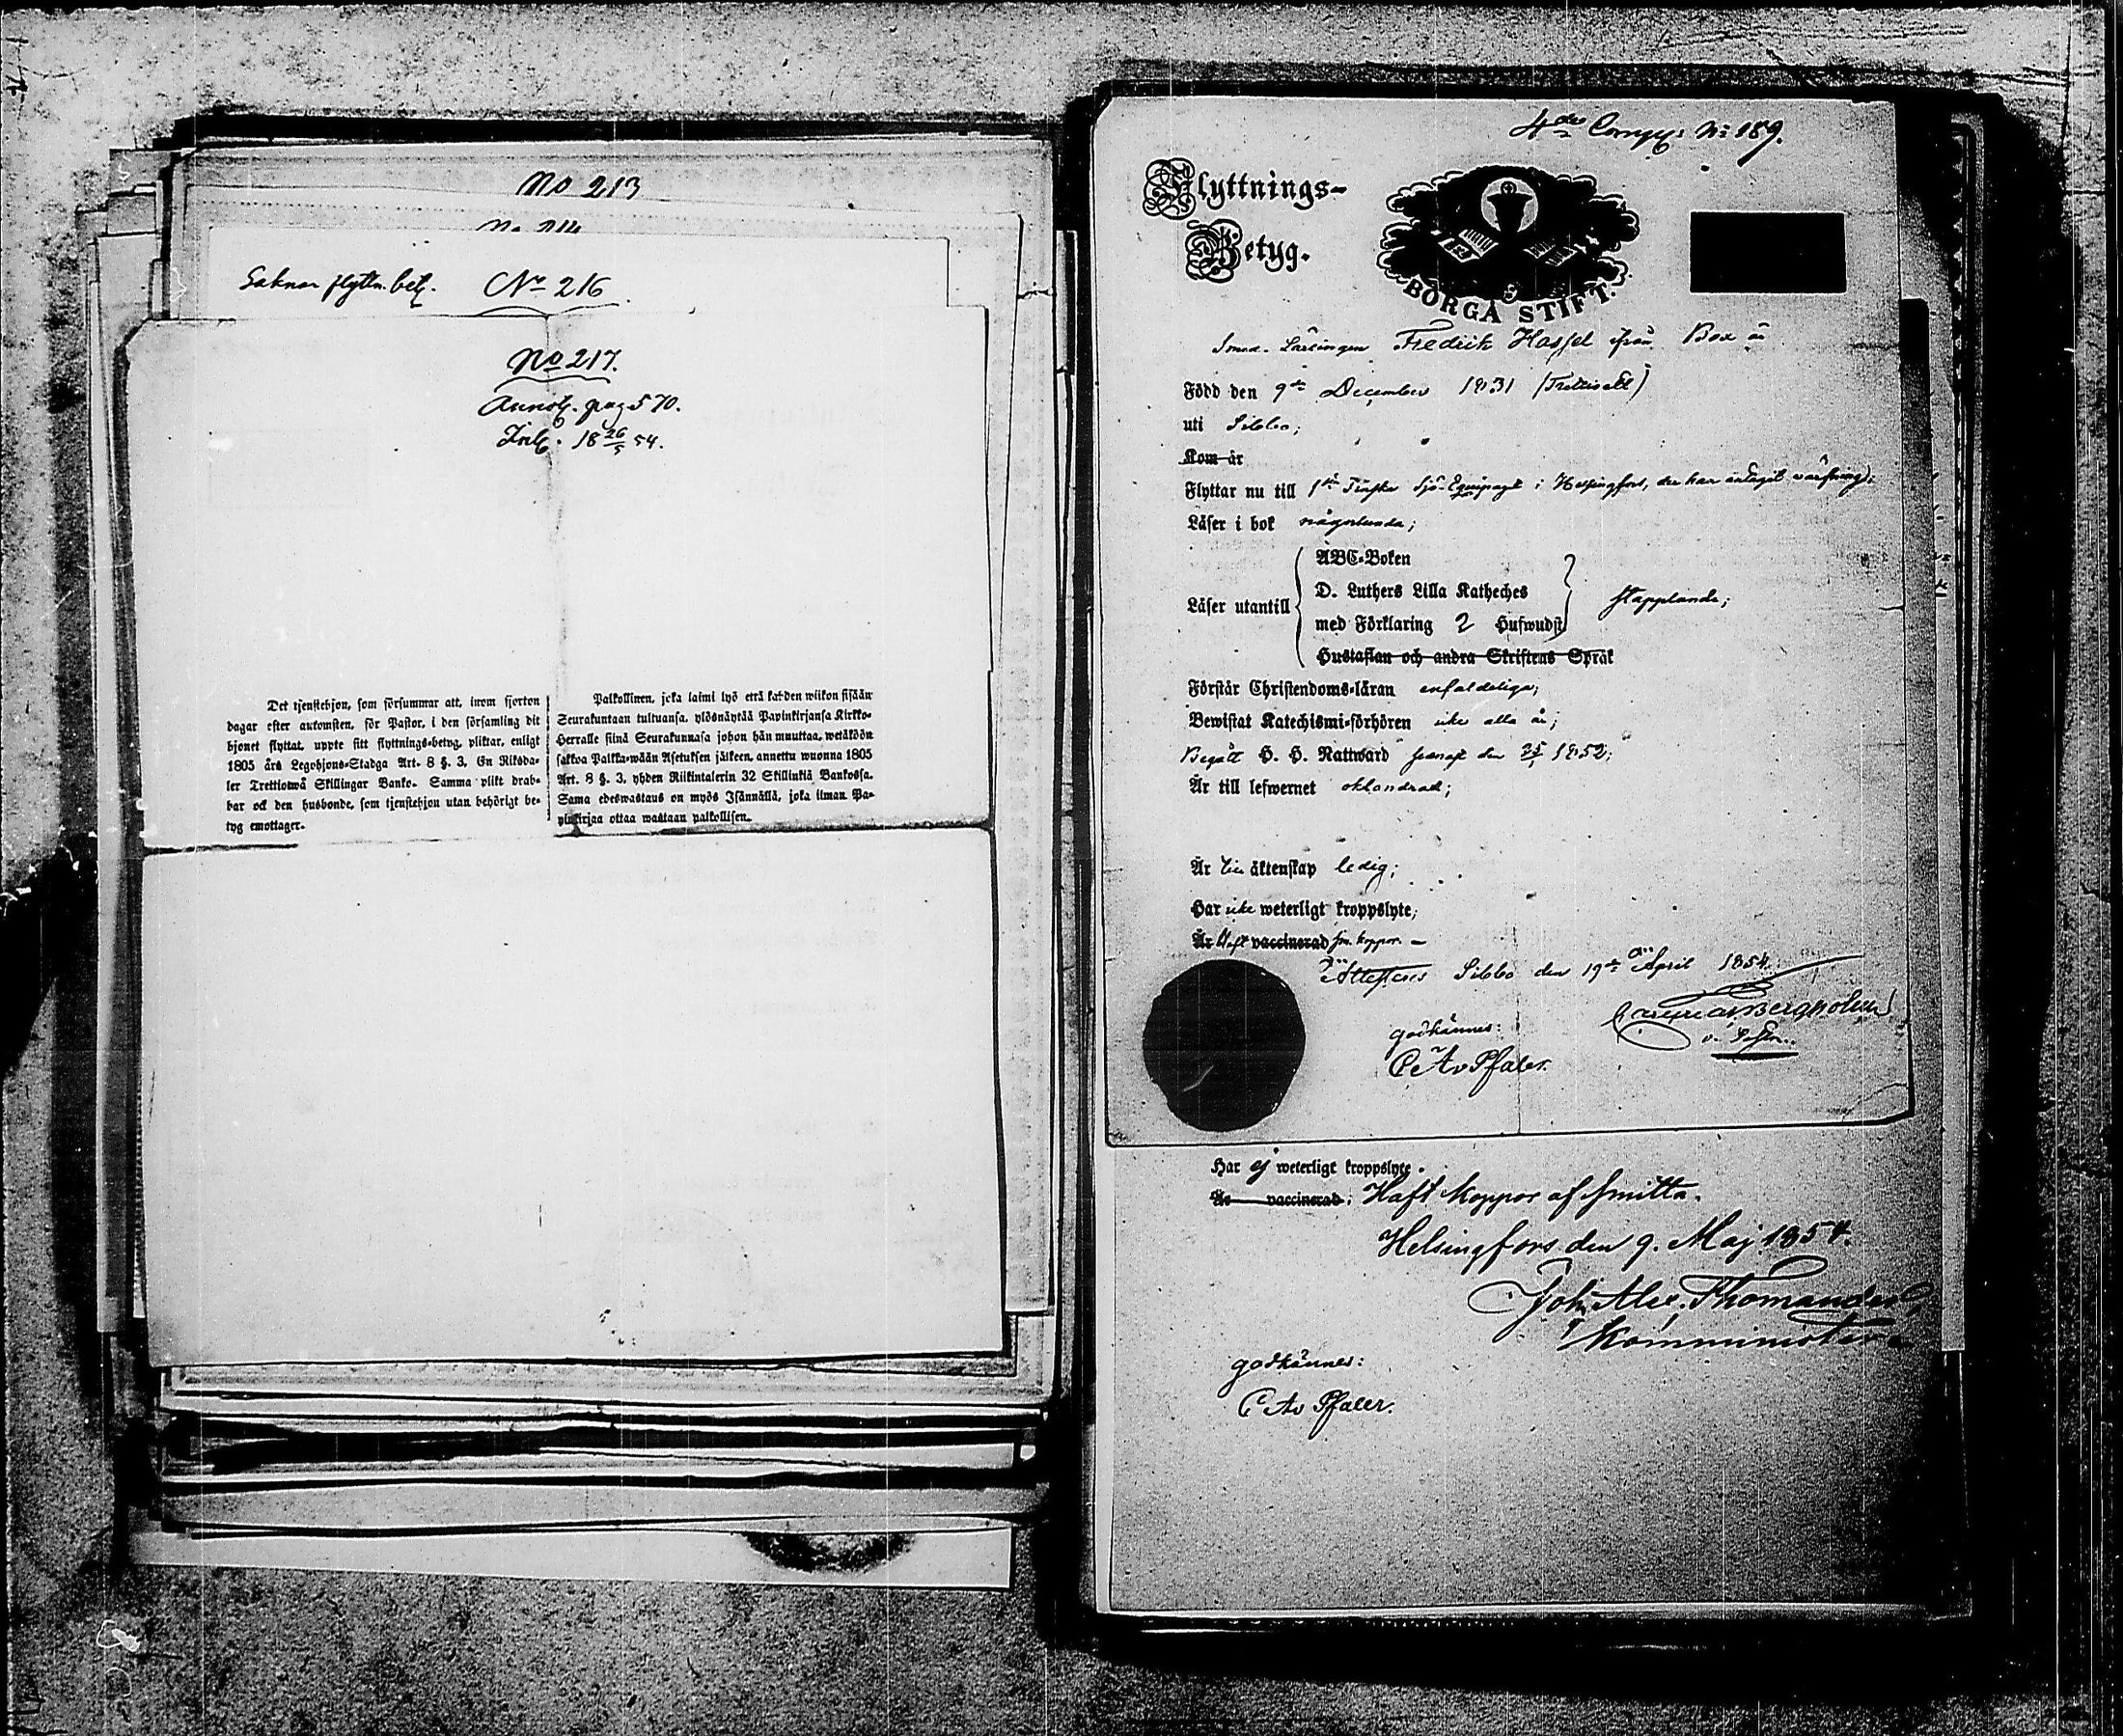 No 213
Saknar flyttn. bet. No 216
No 217.
Annot. pag 570.
Inl. 18 26/5 54.
Det tjenstehjon, som försummar att, inom fjorton
dagar efter ankomsten, för Pastor, i den församling dit
hjonet flyttat, uppte sitt flyttnings-betyg, pliktar, enligt
1805 års Legohjons-Stadga Art. 8 §. 3. En Riksda-
ler Trettiotwå Skillingar Banko. Samma plikt drab-
bar ock den husbonde, som tjenstehjon utan behörigt be-
tyg emottager.
Palkollinen, joka laimi lyö että kahden wiikon sisään
Seurakuntaan tultuansa, ylösnäytää Papinkirjansa Kirkko-
Herralle siinä Seurakunnasa johon hän muuttaa, wetäköön
sakkoa Palkka-wään Asetuksen jälkeen, annettu wuonna 1805
Art. 8 §. 3, yhden Riikintalerin 32 Skillinkiä Bankossa.
Sama edeswastaus on myös Isännällä, joka ilman Pa-
pinkirjaa ottaa wastaan palkollisen.
4de Comp: No 189.
Flyttnings-
Betyg.
BORGÅ STIFT.
Smed-Lärlingen Fredrik Hassel ifrån Box är
Född den 9de December 1831 (Trettioett)
uti Sibbo;
Kom år
Flyttar nu till 1sta Finska Sjö-Equipaget i Helsingfors, der han antagit värfning;
Läser i bok någorlunda;
Läser utantill
ABC-Boken
D. Luthers Lilla Katheches
med Förklaring 2 Hufwudst
stapplande;
Hustaflan och andra Skriftens Språk
Förstår Christendoms-läran enfaldeliga;
Bewistat Katechismi-förhören icke alla år;
Begått H. H. Nattward senast den 1852;
Är till lefwernet oklandrad;
Är till äktenskap ledig;
Har icke weterligt kroppslyte;
Är Haft vaccinerad sm. koppor. —
Attesterar Sibbo den 19de April 1854.
Bergholm
godkännes:
C. A. v. Pfaler.
Har ej weterligt kroppslyte.
Är vaccinerad; Haft koppor af smitta.
Helsingfors den 9. Maj 1854.
Joh. Alex. Thomander,
Komminister.
godkännes:
C A v Pfaler.